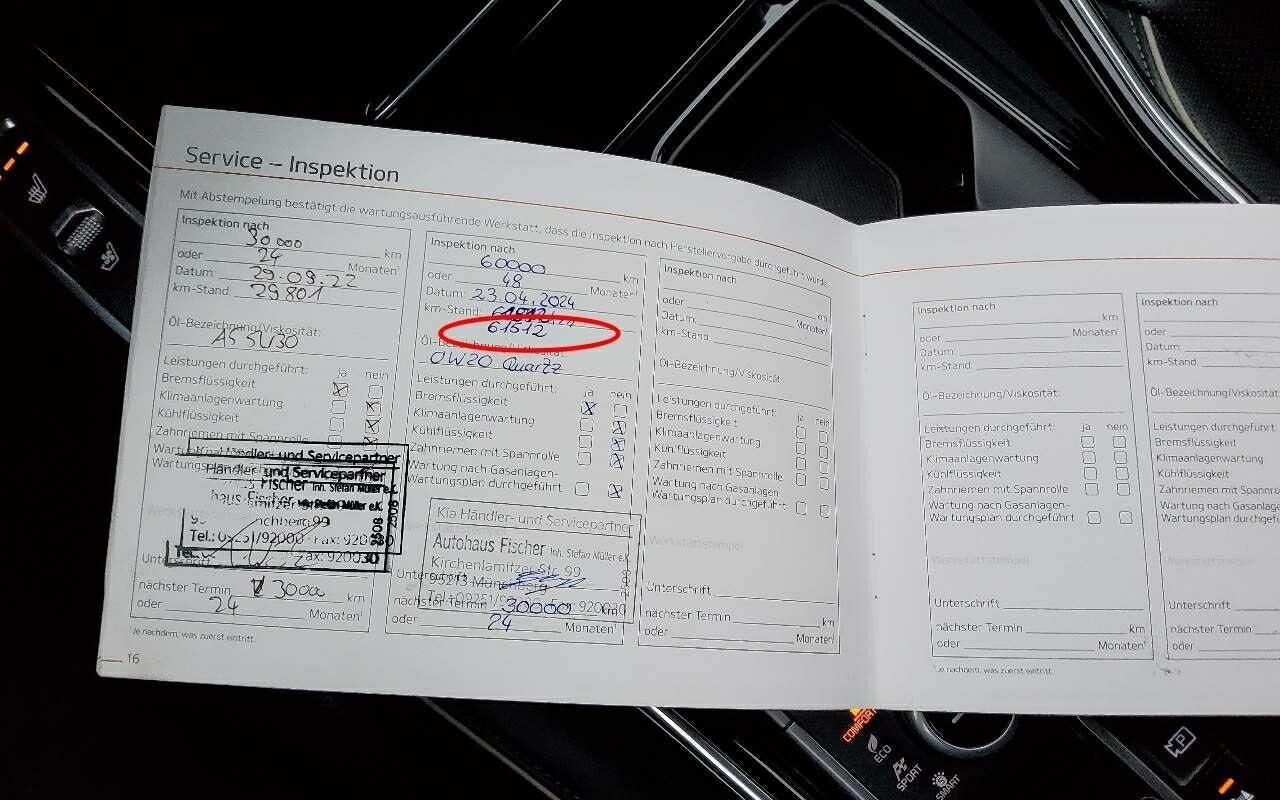 Service – Inspektion
Mit Abstempelung bestätigt die wartungsausführende Werkstatt, dass die Inspektion nach Herstellervorgabe durchgeführt wurde.
Inspektion nach
30000 km
oder 24 Monaten¹
Datum: 29.09.22
km-Stand: 29801
Öl-Bezeichnung/Viskosität:
A5 5W30
Leistungen durchgeführt: ja nein
Bremsflüssigkeit
Klimaanlagenwartung
Kühlflüssigkeit
Zahnriemen mit Spannrolle
Kia Händler- und Servicepartner
Händler- und Servicepartner
Fischer Inh. Stefan Müller e.K.
haus Fischer Stefan Müller e.K.
99
Tel.: 09251/92000 Fax: 920030
nächster Termin 30000 km
oder 24 Monaten¹
¹Je nachdem, was zuerst eintritt.
16
Inspektion nach
60000 km
oder 48 Monaten¹
Datum: 23.04.2024
km-Stand:
61512
Öl-Bezeichnung/Viskosität:
0W20 Quartz
Leistungen durchgeführt: ja nein
Bremsflüssigkeit
Klimaanlagenwartung
Kühlflüssigkeit
Zahnriemen mit Spannrolle
Wartung nach Gasanlagen-
Wartungsplan durchgeführt
Kia Händler- und Servicepartner
Autohaus Fischer Inh. Stefan Müller e.K.
Kirchenlamitzer Str. 99
95213 Münchberg
Unterschrift
nächster Termin 30000 km
oder 24 Monaten¹
Inspektion nach
km
oder Monaten¹
Datum:
km-Stand:
Öl-Bezeichnung/Viskosität:
Leistungen durchgeführt: ja nein
Bremsflüssigkeit
Klimaanlagenwartung
Kühlflüssigkeit
Zahnriemen mit Spannrolle
Wartung nach Gasanlagen-
Wartungsplan durchgeführt
Werkstattstempel
Unterschrift
nächster Termin km
oder Monaten¹
Inspektion nach
km
oder Monaten¹
Datum:
km-Stand:
Öl-Bezeichnung/Viskosität:
Leistungen durchgeführt: ja nein
Bremsflüssigkeit
Klimaanlagenwartung
Kühlflüssigkeit
Zahnriemen mit Spannrolle
Wartung nach Gasanlagen-
Wartungsplan durchgeführt
Werkstattstempel
Unterschrift
nächster Termin km
oder Monaten¹
¹Je nachdem, was zuerst eintritt.
Inspektion nach
oder
Datum:
km-Stand:
Öl-Bezeichnung/Viskosität
Leistungen durchgeführt:
Bremsflüssigkeit
Klimaanlagenwartung
Kühlflüssigkeit
Zahnriemen mit Spannrolle
Wartung nach Gasanlagen-
Wartungsplan durchgeführt
Unterschrift
nächster Termin
oder
COMFORT
ECO
SPORT
SMART
P